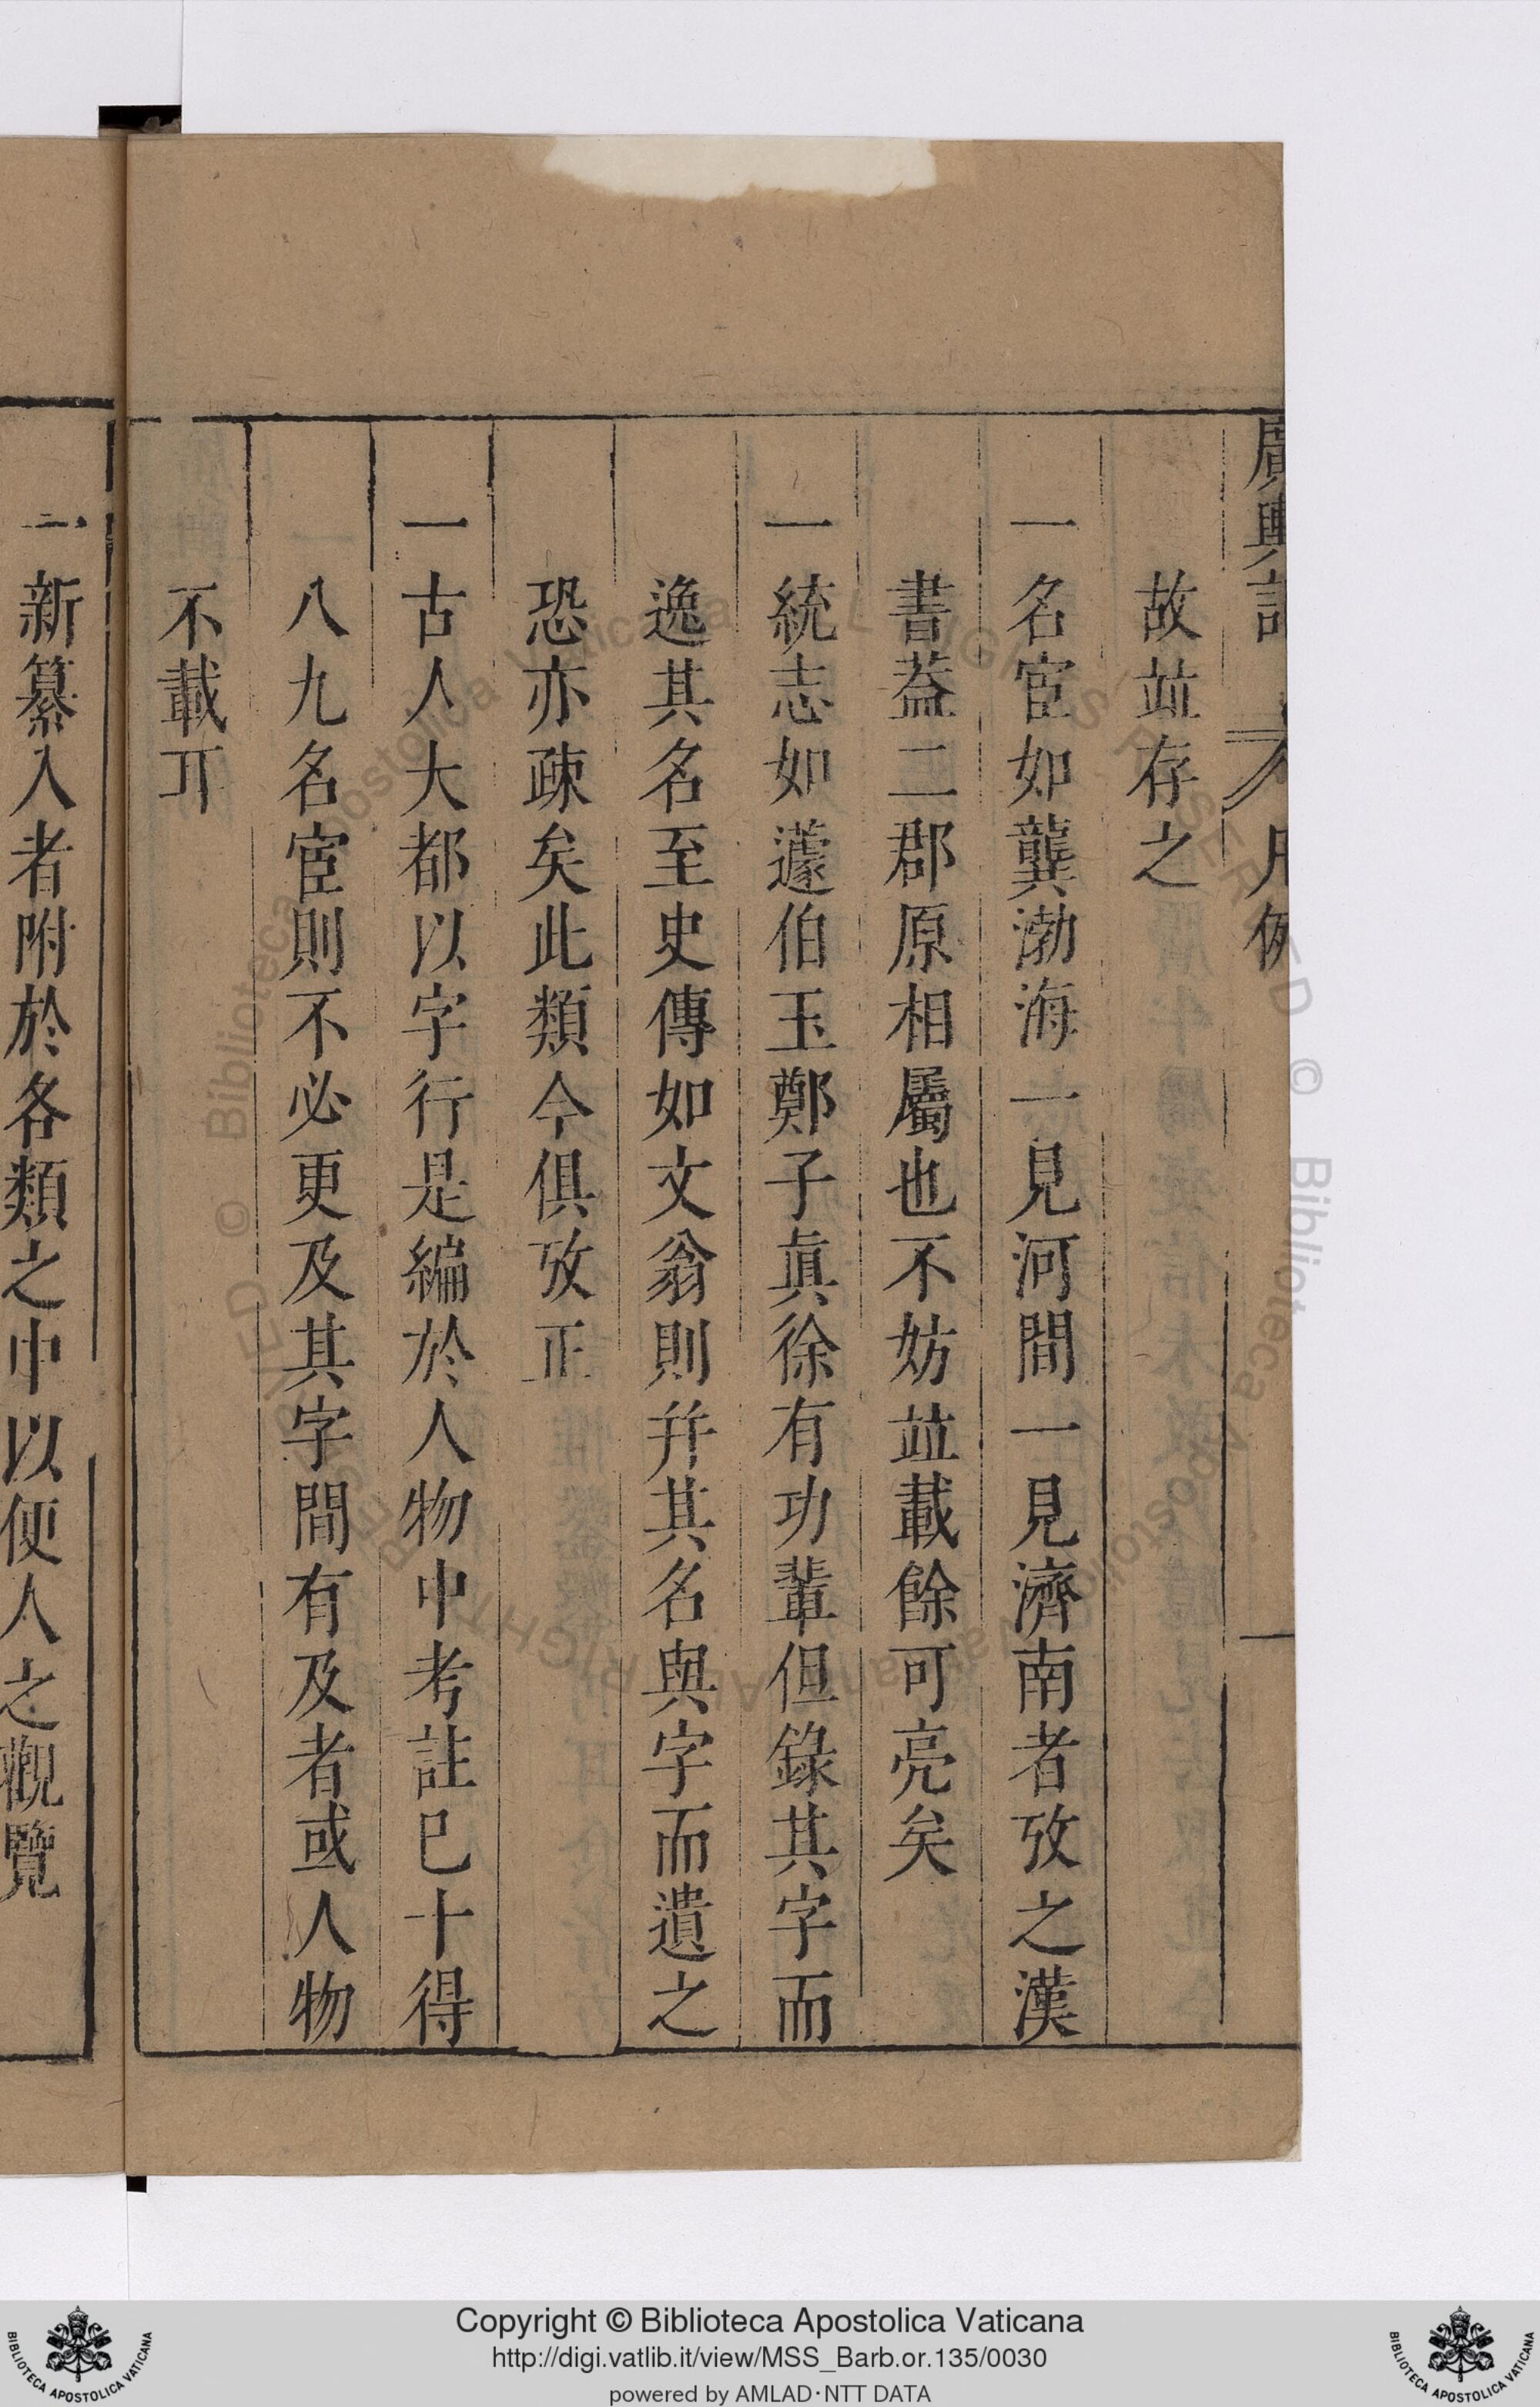 廣輿記 凡例
故竝存之
一名宦如龔渤海一見河間一見濟南者攷之漢
書葢二郡原相屬也不妨竝載餘可亮矣
一統志如蘧伯玉鄭子眞徐有功輩但錄其字而
逸其名至史傳如文翁則幷其名與字而遺之
恐亦疎矣此類今俱攷正
一古人大都以字行是編於人物中考註巳十得
八九名宦則不必更及其字間有及者或人物
不載耳
一新纂入者附於各類之中以便人之觀覽
Copyright © Biblioteca Apostolica Vaticana
http://digi.vatlib.it/view/MSS_Barb.or.135/0030
powered by AMLAD·NTT DATA
BIBLIOTECA APOSTOLICA VATICANA
BIBLIOTECA APOSTOLICA VATICANA